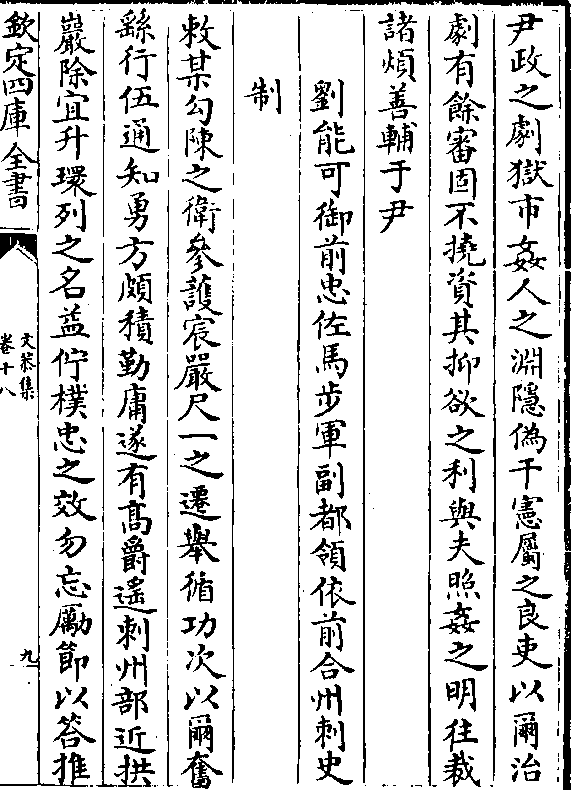 尹政之劇獄市姦人之淵隱僞干憲屬之良吏以爾治
劇有餘審固不撓資其抑欲之利與夫照姦之明往裁
諸煩善輔于尹
劉能可御前忠佐馬步軍副都領依前合州刺史
制
敕某勾陳之衛參護宸嚴尺一之遷舉循功次以爾奮
繇行伍通知勇方頗積勤庸遂有髙爵遙刺州部近拱
巖除宜升環列之名益佇樸忠之效勿忘勵節以答推
欽定四庫全書
文恭集
卷十八
九